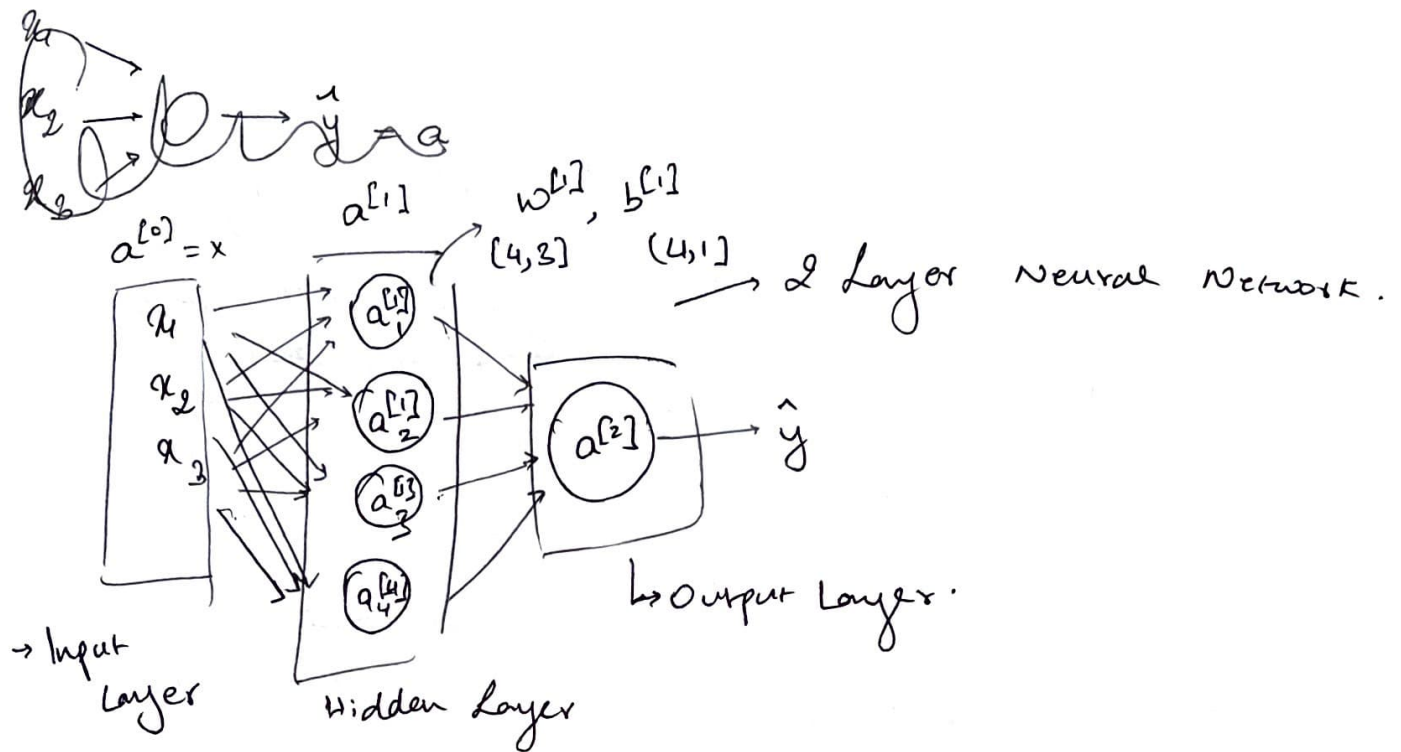 x₂ → ŷ = a
a^[1]
w^[1], b^[1]
a^[0] = x
[4,3] (4,1]
→ 2 Layer Neural Network.
x₁
x₂
x₃
a₁^[1]
a₂^[1]
a₃^[1]
a₄^[4]
a^[2]
ŷ
↳ Output Layer.
→ Input
Layer
Hidden Layer